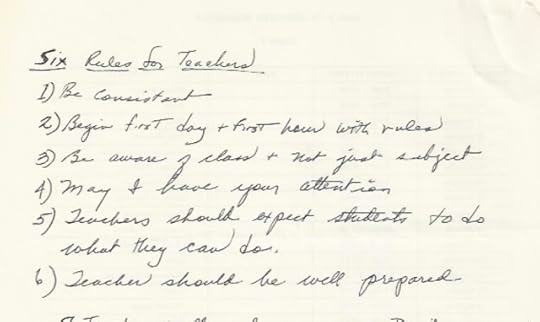 Six Rules for Teachers
1) Be consistant
2) Begin first day + first hour with rules
3) Be aware of class + not just subject
4) May I have your attention
5) Teachers should expect students to do
what they can do.
6) Teacher should be well prepared